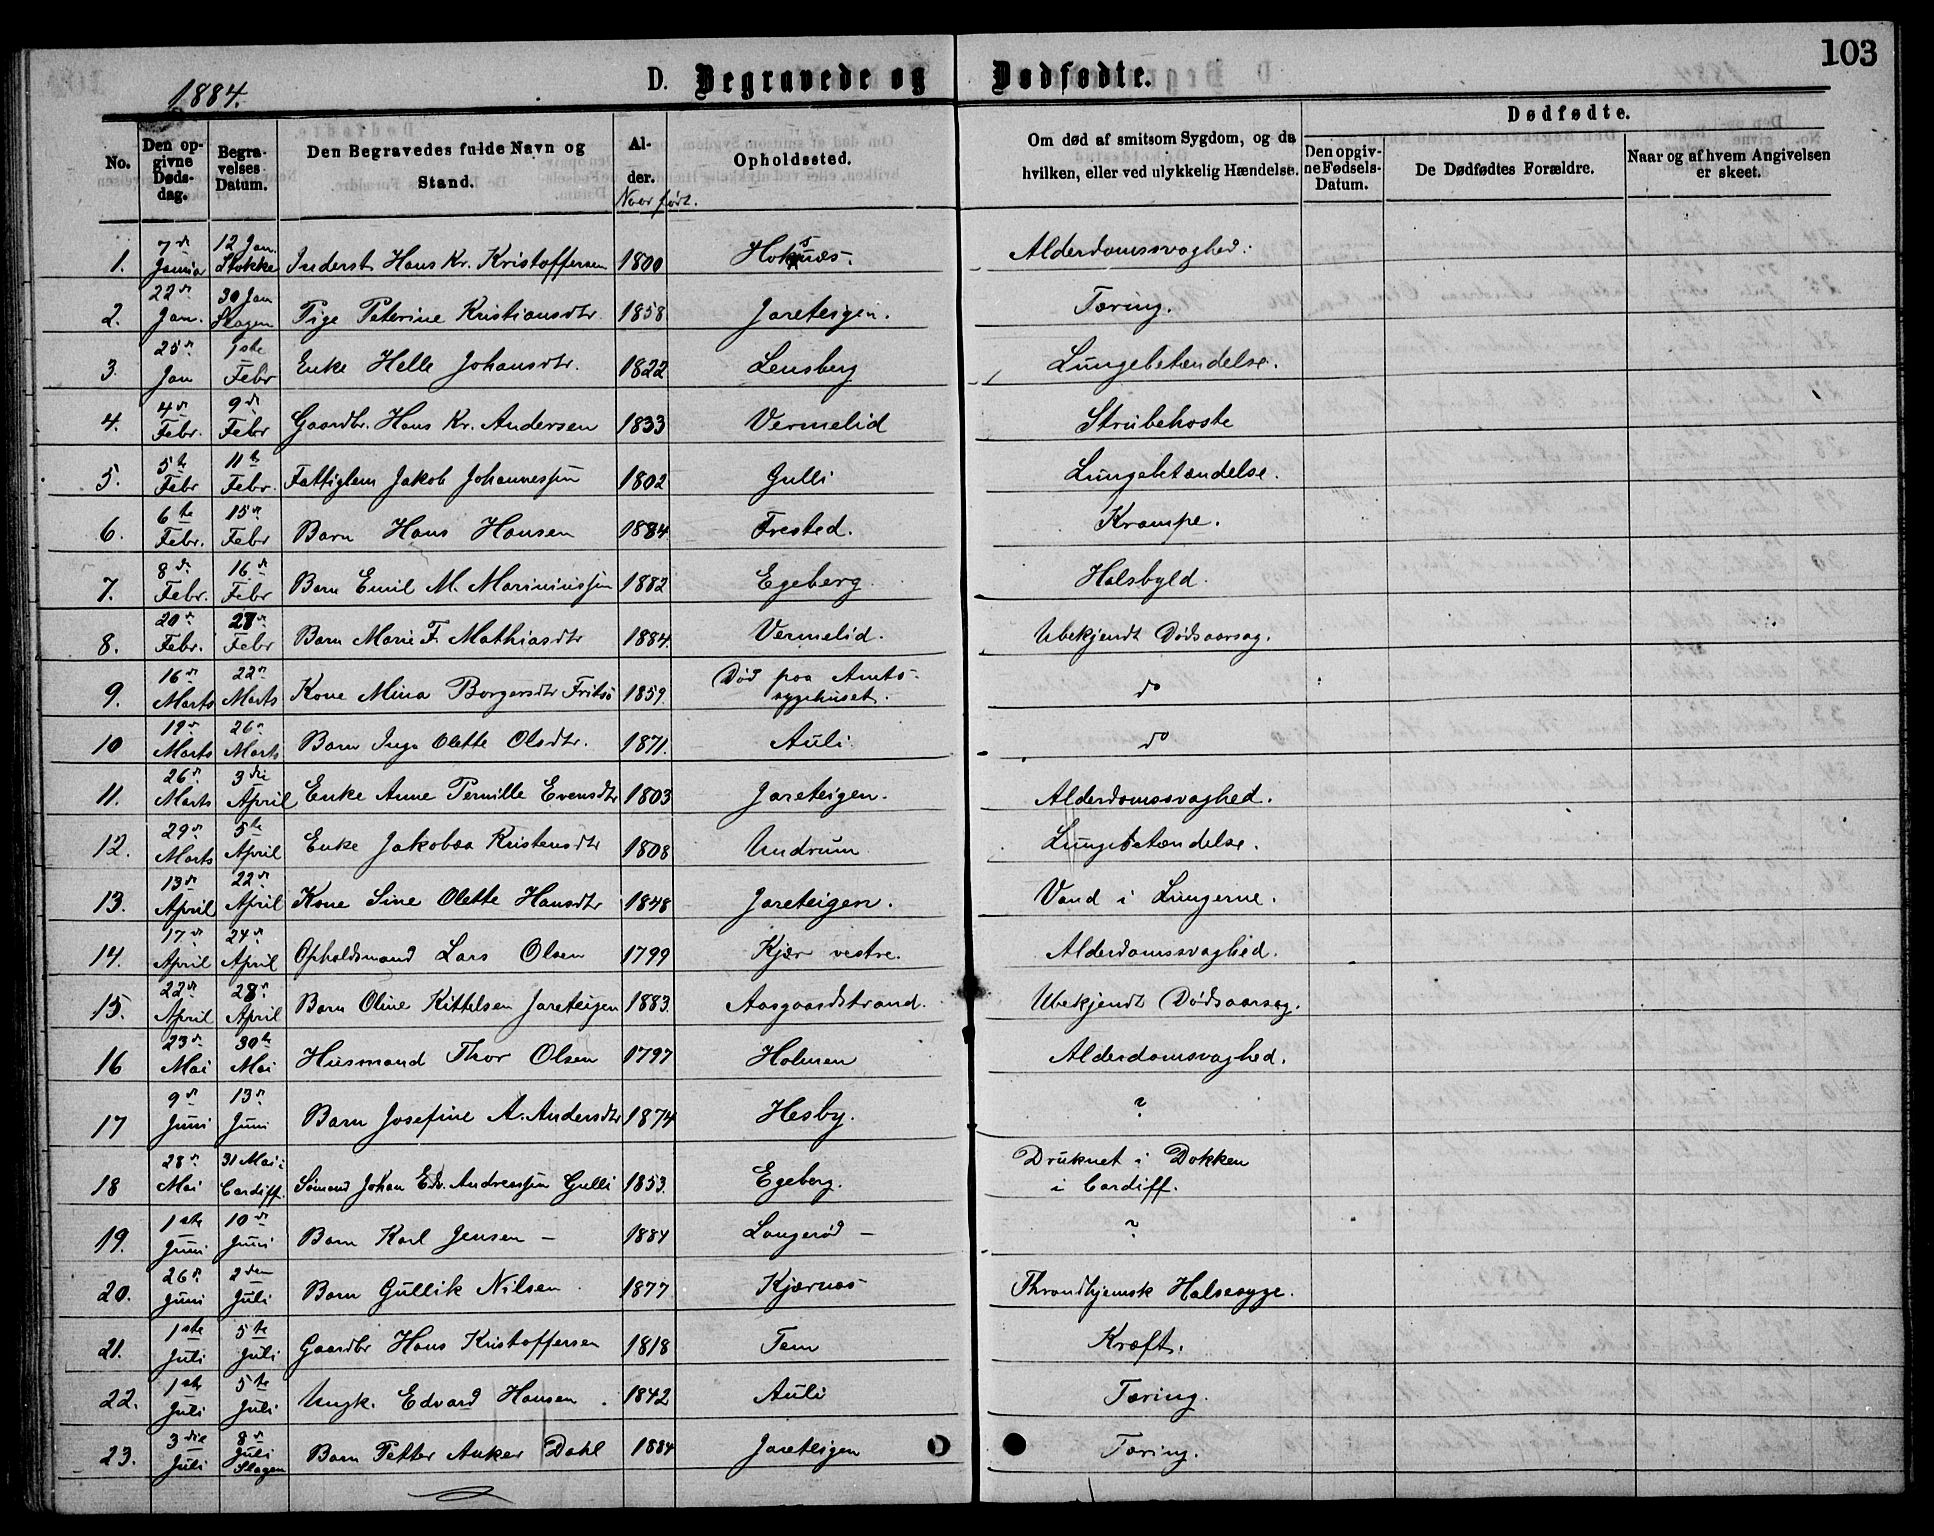 103
1884.
D. Begravede og Dødfødte.
No.
Den opgivne Dødsdag.
Begravelses Datum.
Den Begravedes fulde Navn og Stand.
Alder.
Naar født.
Opholdssted.
Om død af smitsom Sygdom, og da hvilken, eller ved ulykkelig Hændelse.
Dødfødte.
Den opgivne Fødsels-Datum.
De Dødfødtes Forældre.
Naar og af hvem Angivelsen er skeet.
1. 7de Januar 12 Jan. Stokke Inderst Hans Kr. Kristoffersen 1800 Alderdomssvaghed.
2. 22de Jan. 30 Jan Slagen Pige Peterine Kristiansdtr 1858 Jareteigen. Tæring.
3. 25de Jan 1ste Febr Enke Helle Johansdtr. 1822 Lensberg Lungebetændelse.
4. 4de Febr. 9de Febr Gaardbr. Hans Kr. Andersen 1833 Vermelid Strubehoste
5. 5te Febr 11te Febr. Fattiglem Jakob Johannessen 1802 Gulli Lungebetændelse.
6. 6te Febr. 15de Febr Barn Hans Hansen 1884 Frested. Krampe.
7. 8de Febr. 16de Febr Barn Emil M. Mariniussen 1882 Egeberg Halsbyld.
8. 20de Febr. 27de Febr Barn Marie F. Mathiasdtr 1884. Vermelid. Ubekjendt Dødsaarsag.
9. 16de Marts 22de Marts Kone Mina Borgersdtr 1859. Død paa Amtssygehuset. do
10 19de Marts 26de Marts Barn Inga Olette Olsdtr. 1871. Auli. do
11. 26de Marts 3die April Enke Anne Pernille Evensdtr 1803 Jareteigen. Alderdomssvaghed.
12. 29de Marts 5te April Enke Jakobæa Kristensdtr 1808 Undrum Lungebetændelse.
13. 13de April 22de April Kone Sine Olette Hansdtr 1848 Jareteigen. Vand i Lungerne.
14. 17de April 24de April Opholdsmand Lars Olsen 1799 Kjær vestre. Alderdomssvaghed.
15. 22de April 28de April Barn Oline Kittelsen Jareteigen 1883. Aasgaardstrand. Ubekjendt Dødsaarsag.
16 23de Mai 30te Mai Husmand Thor Olsen 1797 Holmen Alderdomsvaghed.
17 9de Juni 13de Juni Barn Josefine A. Andersdtr 1874 Hesby. ?
18 28de Mai 31 Mai i Cardiff. Sømand Johan Edv. Andreassen Gulli 1853. Egeberg. Druknet i Dokken i Cardiff.
19. 1ste Juni 10de Juni Barn Karl Jensen – 1884 Langerød – ?
20. 26de Juni 2den Juli Barn Gullik Nilsen 1877 Kjærnæs Throndhjemsk Halsesyge.
21. 1ste Juli 5te Juli Gaardbr Hans Kristoffersen 1818 Tem Kræft.
22. 1ste Juli 5te Juli Ungk. Edvard Hansen 1842 Auli Tæring.
23. 3die Juli 8de Juli Slagen Barn Petter Anker Dahl 1884 Jareteigen Tæring.